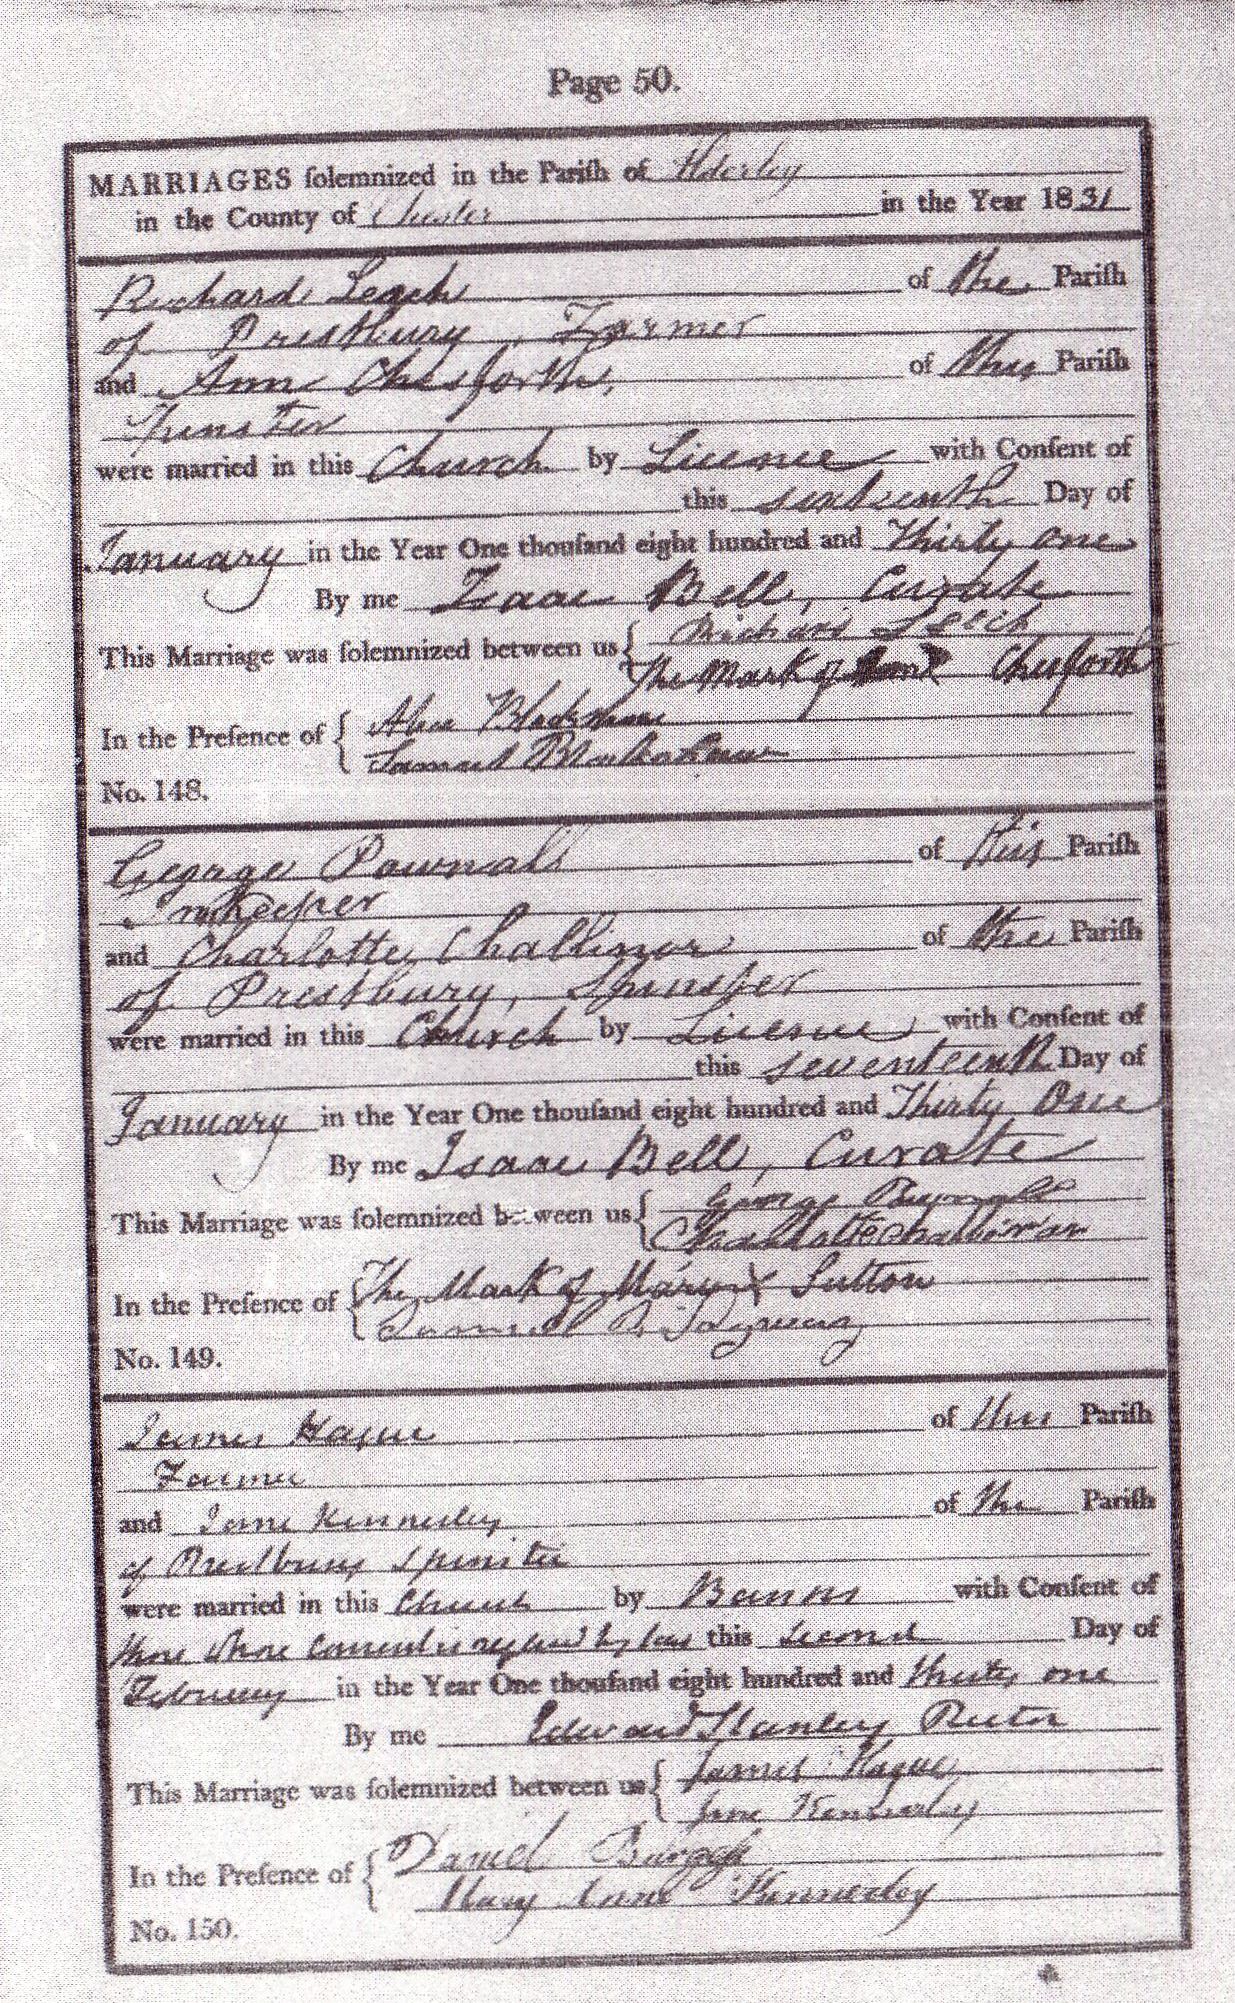 Page 50.
MARRIAGES ſolemnized in the Pariſh of Alderley
in the County of Chester in the Year 1831
Richard Leech of the Pariſh
of Prestbury, Farmer
and Ann Chesforth, of this Pariſh
Spinster
were married in this Church by Licence with Conſent of
this sixteenth Day of
January in the Year One thouſand eight hundred and Thirty One
By me Isaac Bell, Curate
This Marriage was ſolemnized between us Richard Leech
The Mark of Ann X Chesforth
In the Preſence of Alice
Samuel
No. 148.
George Pownall of this Pariſh
Innkeeper
and Charlotte Challinor of the Pariſh
of Prestbury, Spinster
were married in this Church by Licence with Conſent of
this seventeenth Day of
January in the Year One thouſand eight hundred and Thirty One
By me Isaac Bell, Curate
This Marriage was ſolemnized between us George Pownall
Charlotte
In the Preſence of The Mark of X Sutton
Samuel
No. 149.
James Hague of this Pariſh
Farmer
and Jane Kennerley of the Pariſh
of Prestbury Spinster
were married in this Church by Banns with Conſent of
those whose Consent is required by law this second Day of
February in the Year One thouſand eight hundred and thirty one
By me Edward Stanley Rector
This Marriage was ſolemnized between us James Hague
Jane Kennerley
In the Preſence of Daniel Burgess
Mary Anne Kennerley
No. 150.